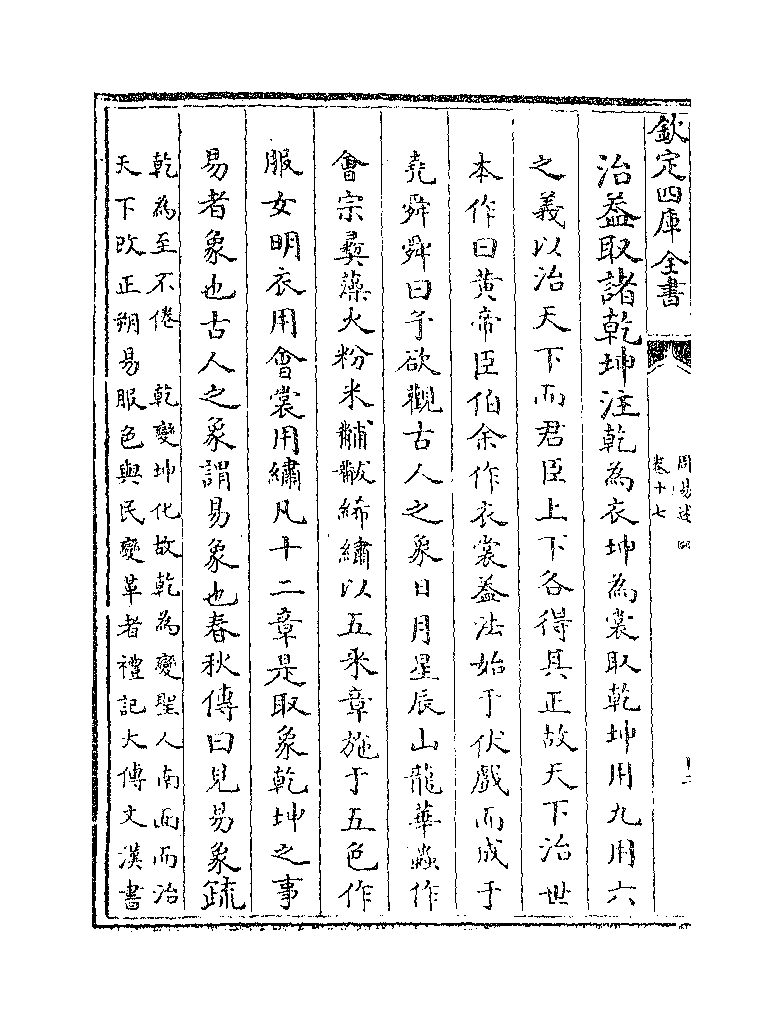 欽定四庫全書
周易述
卷十七
治蓋取諸乾坤注乾為衣坤為裳取乾坤用九用六
之義以治天下而君臣上下各得其正故天下治世
本作曰黃帝臣伯余作衣裳蓋法始于伏戲而成于
堯舜舜曰予欲觀古人之象日月星辰山龍華蟲作
會宗彝藻火粉米黼黻絺繡以五采章施于五色作
服女明衣用會裳用繡凡十二章是取象乾坤之事
易者象也古人之象謂易象也春秋傳曰見易象疏
乾為至不倦　乾變坤化故乾為變聖人南面而治
天下改正朔易服色與民變革者禮記大傳文漢書